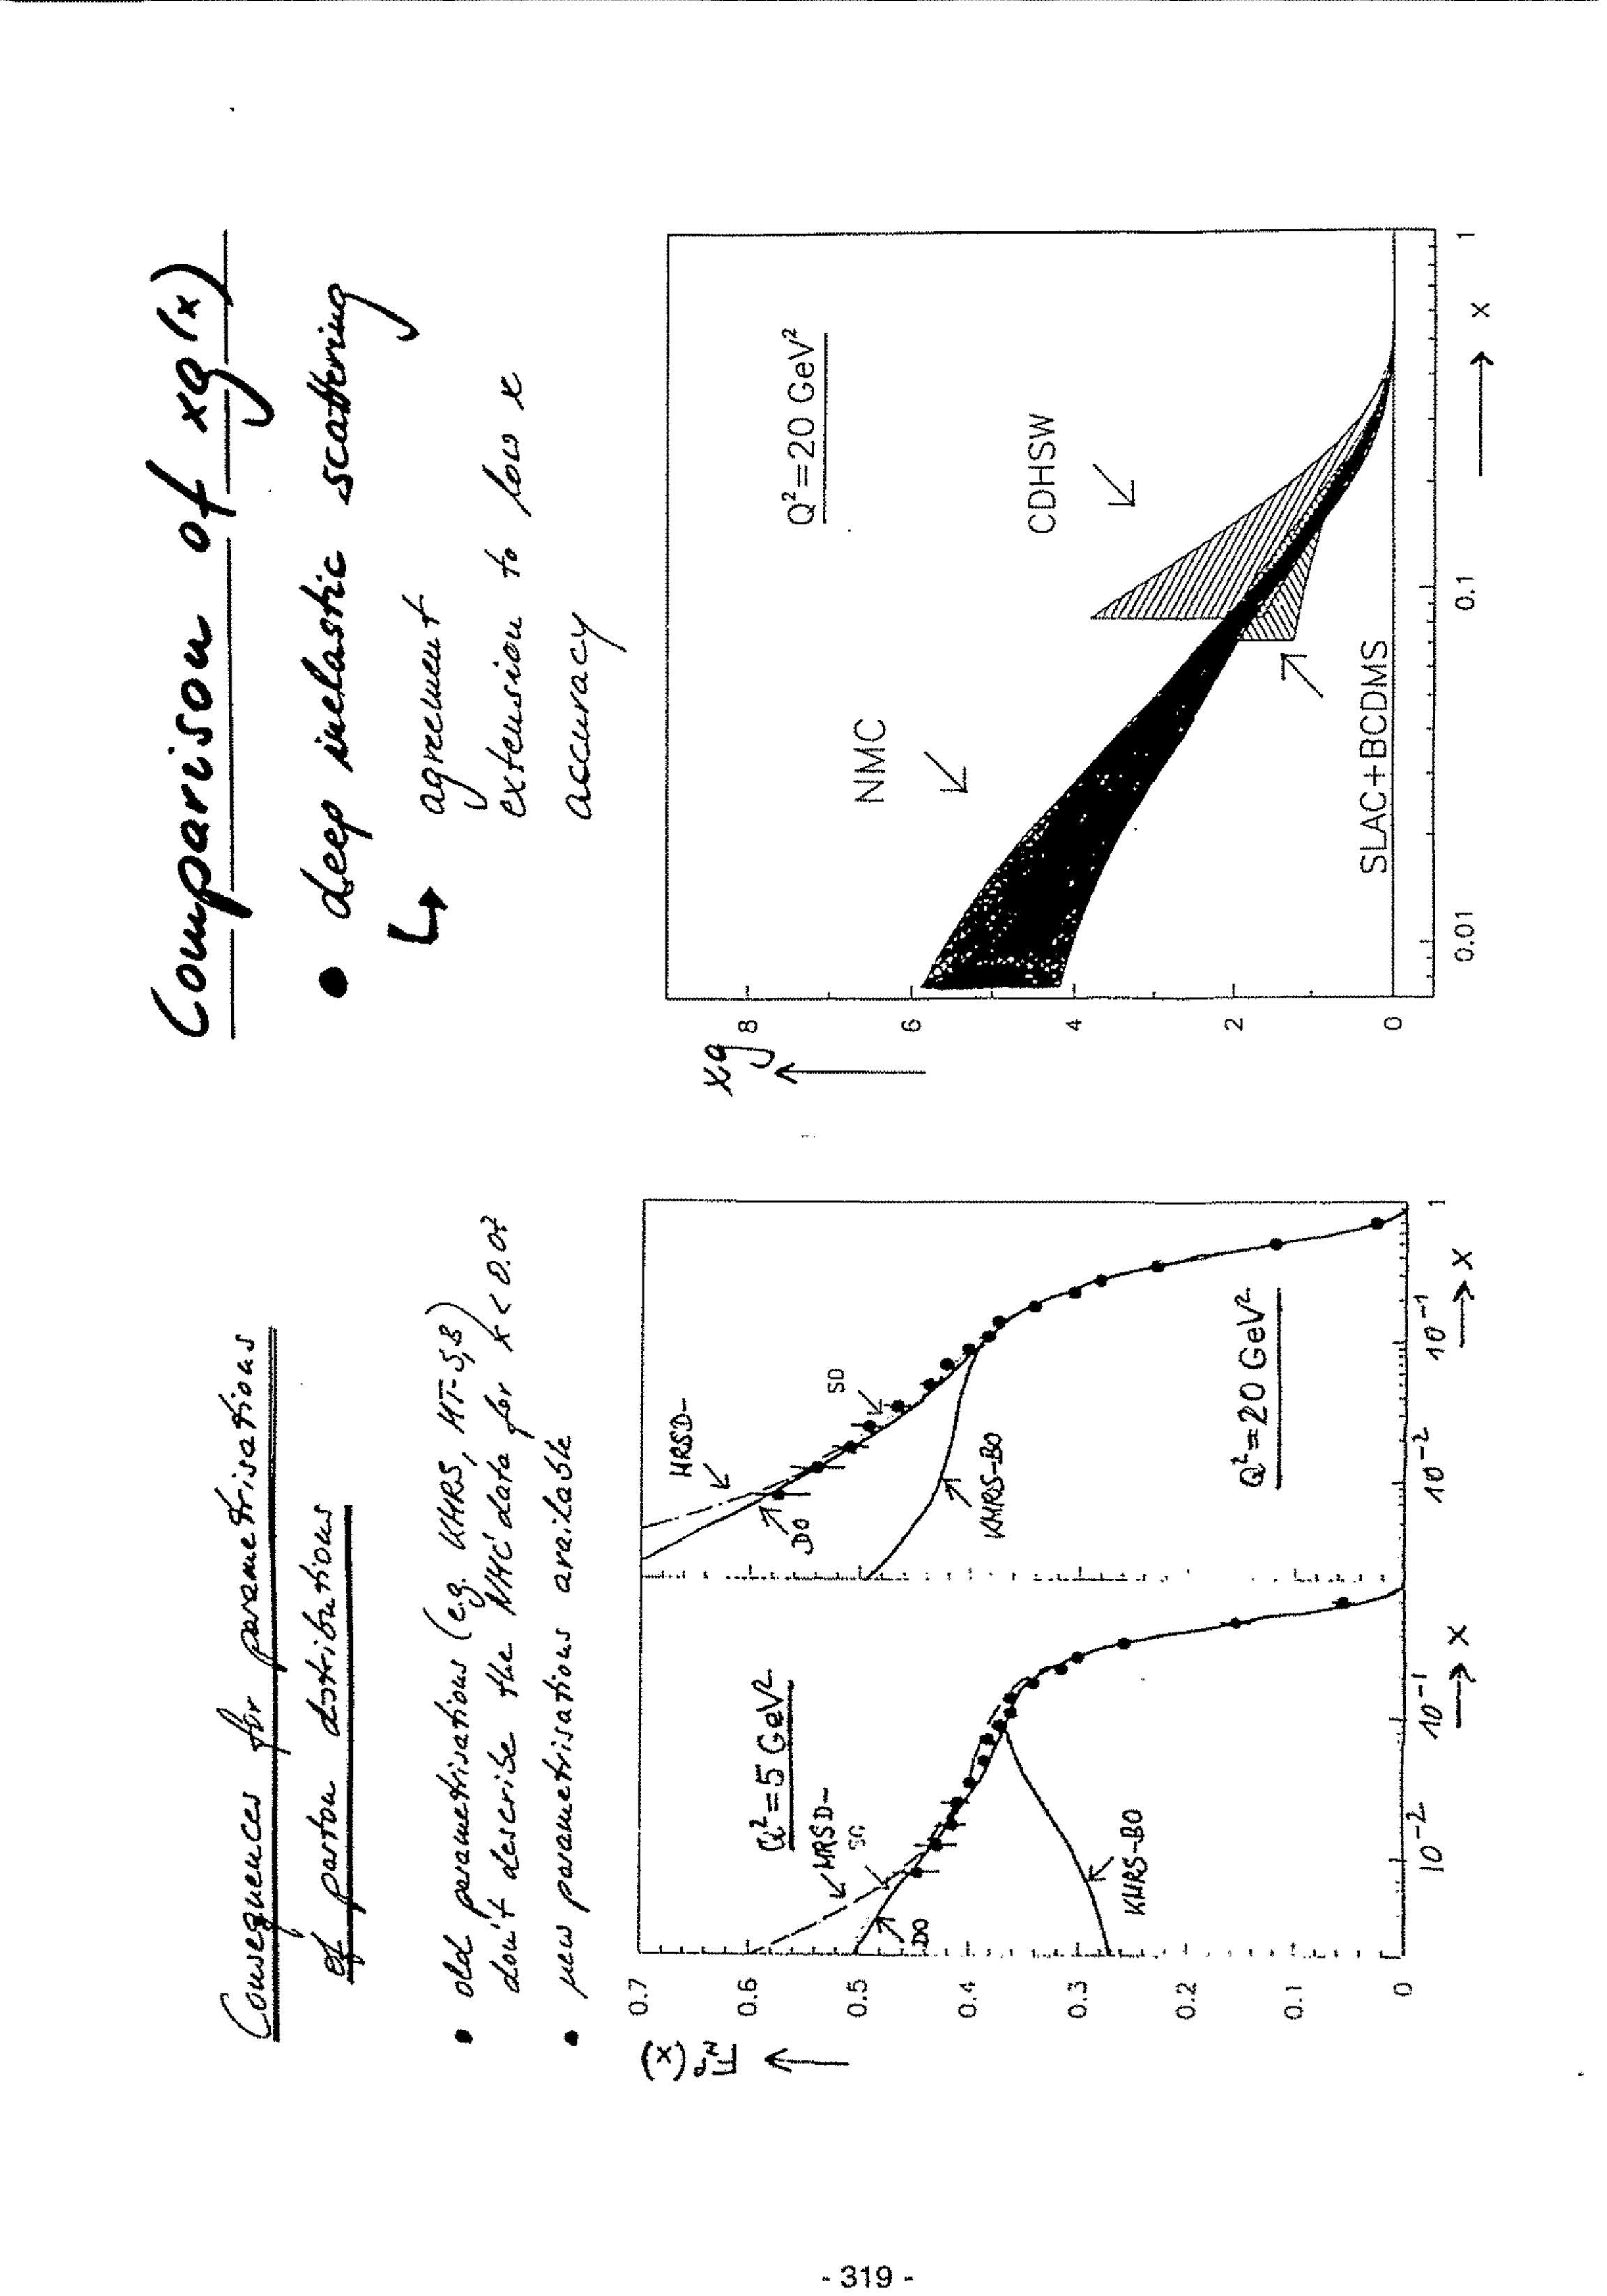 Consequences for parametrisations
of parton distributions
• old parametrisations (e.g. KMRS, MT-S,B)
don't describe the NMC data for x < 0.07
• new parametrisations available
F₂ᵖ(x)
0.7
0.6
0.5
0.4
0.3
0.2
0.1
0
Q²=5 GeV²
MRSD-
S0
D0
KMRS-B0
10⁻²
10⁻¹
x
MRSD-
S0
D0
KMRS-B0
Q²=20 GeV²
10⁻²
10⁻¹
1
x
Comparison of xg(x)
• deep inelastic scattering
↳ agreement
extension to low x
accuracy
xg
8
6
4
2
0
Q²=20 GeV²
NMC
CDHSW
SLAC+BCDMS
0.01
0.1
1
x
- 319 -